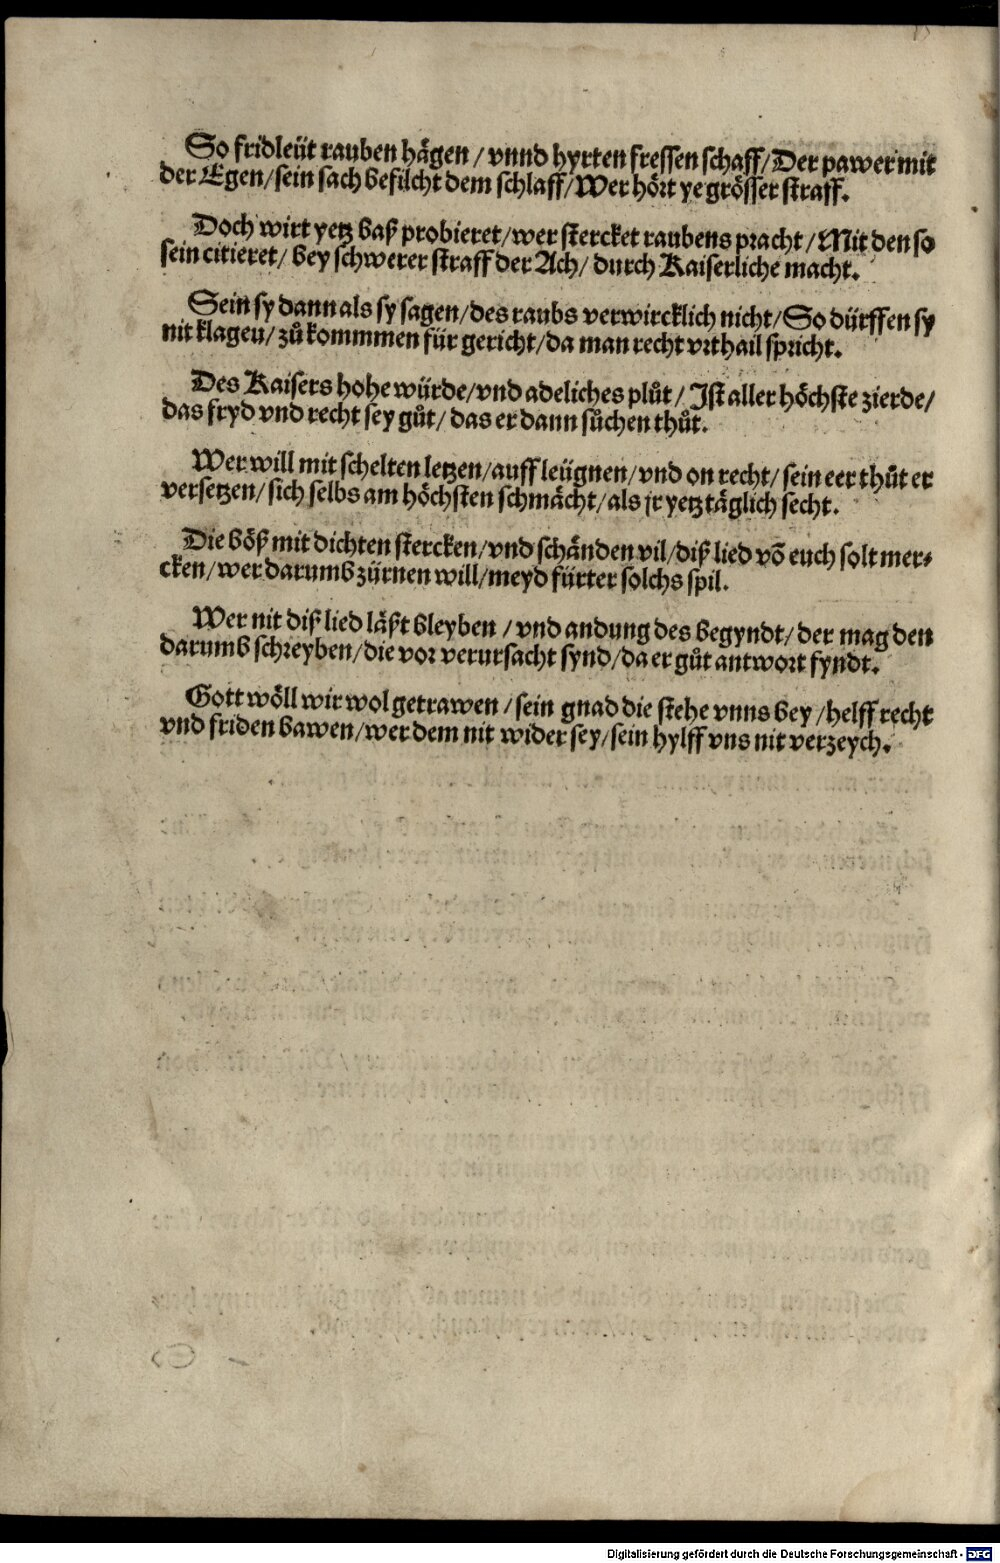 So fridleüt rauben hågen / vnnd hyrten fressen schaff / Der pawer mit
der Egen / sein sach befilcht dem schlaff / Wer hört ye grösser straff.
Doch wirt yetz baß probieret / wer stercket raubens pracht / Mit den so
sein citieret / bey schwerer straff der Ach / durch Kaiserliche macht.
Sein sy dann als sy sagen / des raubs verwircklich nicht / So dürffen sy
nit klagen / zů kommmen für gericht / da man recht vrthail spricht.
Des Kaisers hohe würde / vnd adeliches plůt / Ist aller höchste zierde /
das fryd vnd recht sey gůt / das er dann sůchen thůt.
Wer will mit schelten letzen / auff leügnen / vnd on recht / sein eer thůt er
versetzen / sich selbs am höchsten schmächt / als jr yetz täglich secht.
Die böß mit dichten stercken / vnd schänden vil / diß lied võ euch solt mer⸗
cken / wer darumb zürnen will / meyd fürter solchs spil.
Wer nit diß lied läßt bleyben / vnd andung des begyndt / der mag den
darumb schreyben / die vor verursacht synd / da er gůt antwort fyndt.
Gott wöll wir wol getrawen / sein gnad die stehe vnns bey / helff recht
vnd friden bawen / wer dem nit wider sey / sein hylff vns nit verzeych.
Digitalisierung gefördert durch die Deutsche Forschungsgemeinschaft - DFG